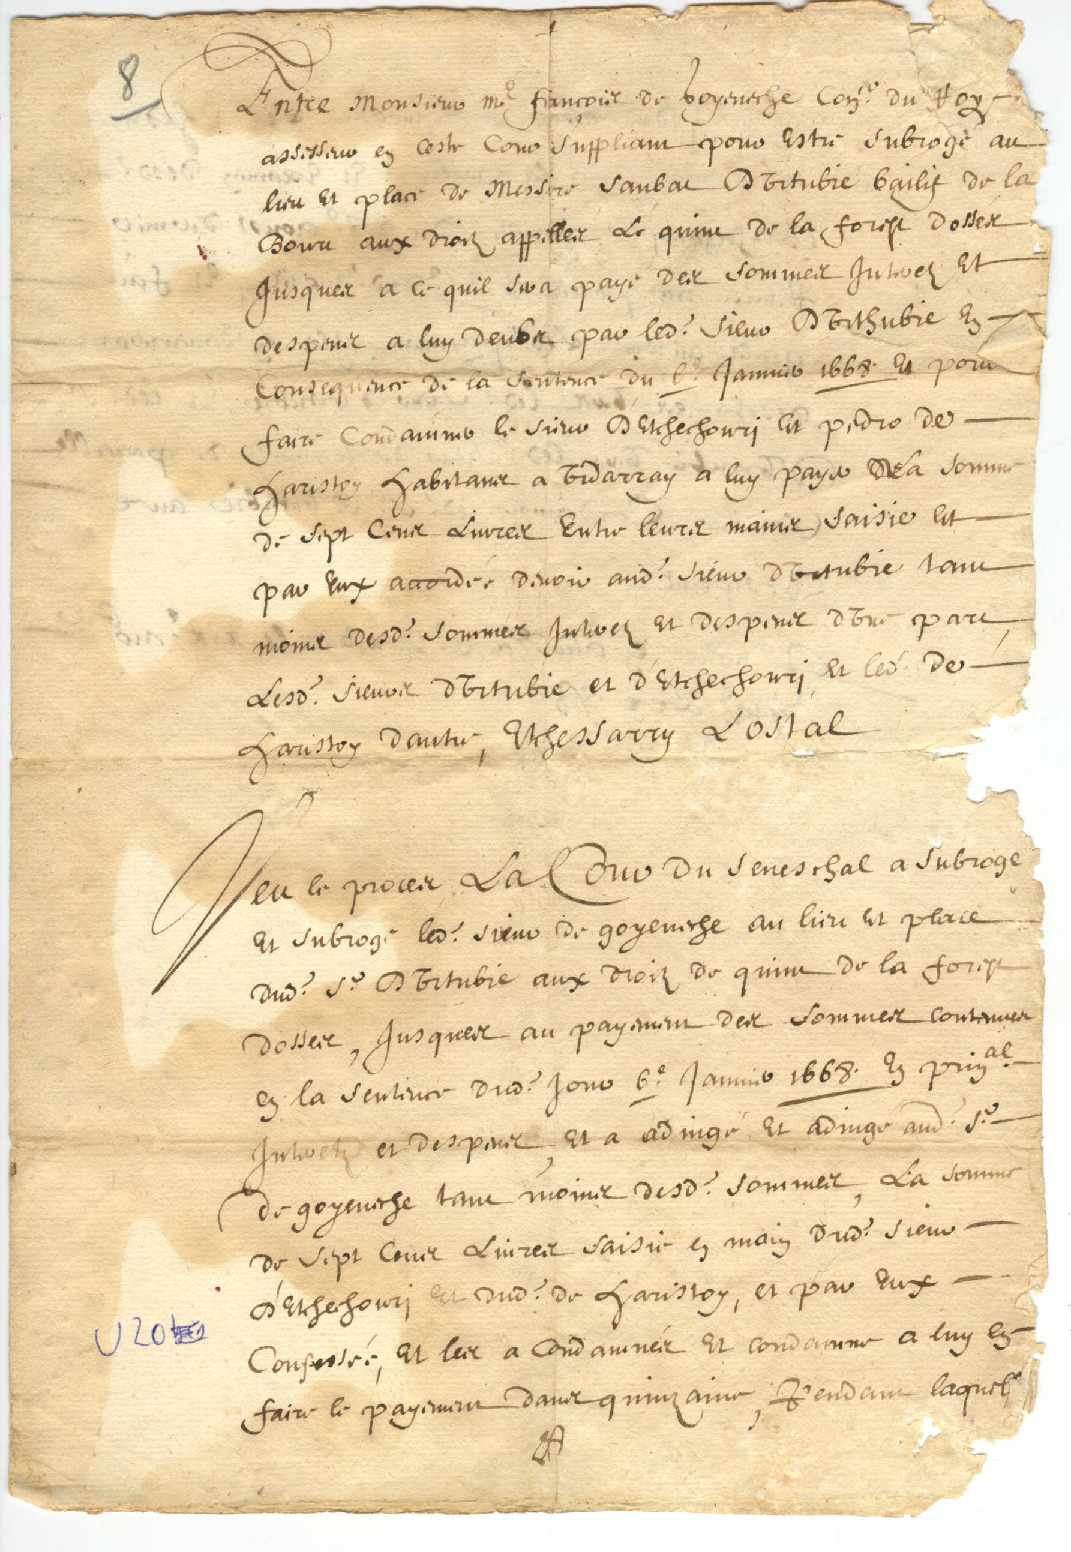 8
Entre Monsieur me. francois de Goyeneche Conr. du Roy
assesseur en ceste Cour suppliant pour Estre subrogé au
lieu Et place de Messire Saubat DUrtubie bailif de la
Bourt aux droitz appellés Le quint de la forest dosses
Jusques a ce quil sera payé des sommes Interetz Et
despens a luy deubes par led. sieur DUrthubie En
Consequence de la sentence du 6e Janvier 1668 Et pour
faire Condamner le sieur DEtchechourj Et pedro de
haristoy habitans a bidarray a luy payer la somme
de sept Cens Livres Entre leurs mains saisie Et
par Eux accordée devoir aud. sieur dUrtubie tant
moins desd. sommes Interetz Et despens dUne part,
Lesd. sieurs dUrtubie et d'Etchechourj Et led. de
haristoy dautre, Etchessarry Lostal
Veu le proces La Cour Du Seneschal a subrogé
Et subroge led. sieur de goyeneche au lieu Et place
dud. sr. DUrtubie aux droitz de quint de la forest
dosses, Jusques au payement des sommes contenues
en la sentence dud. Jour 6e. Janvier 1668. En prinal.
Interetz et despens, Et a adiugé Et adiuge aud. sr.
de goyeneche tant moins desd. sommes, La somme
de sept Cens Livres saisie en main dud. sieur
d'Etchechourj Et dud. de haristoy, et par Eux
Confessée, Et les a Condamnés Et condamne a luy En
U20
faire le payement dans quinzaine, Pendant laquelle